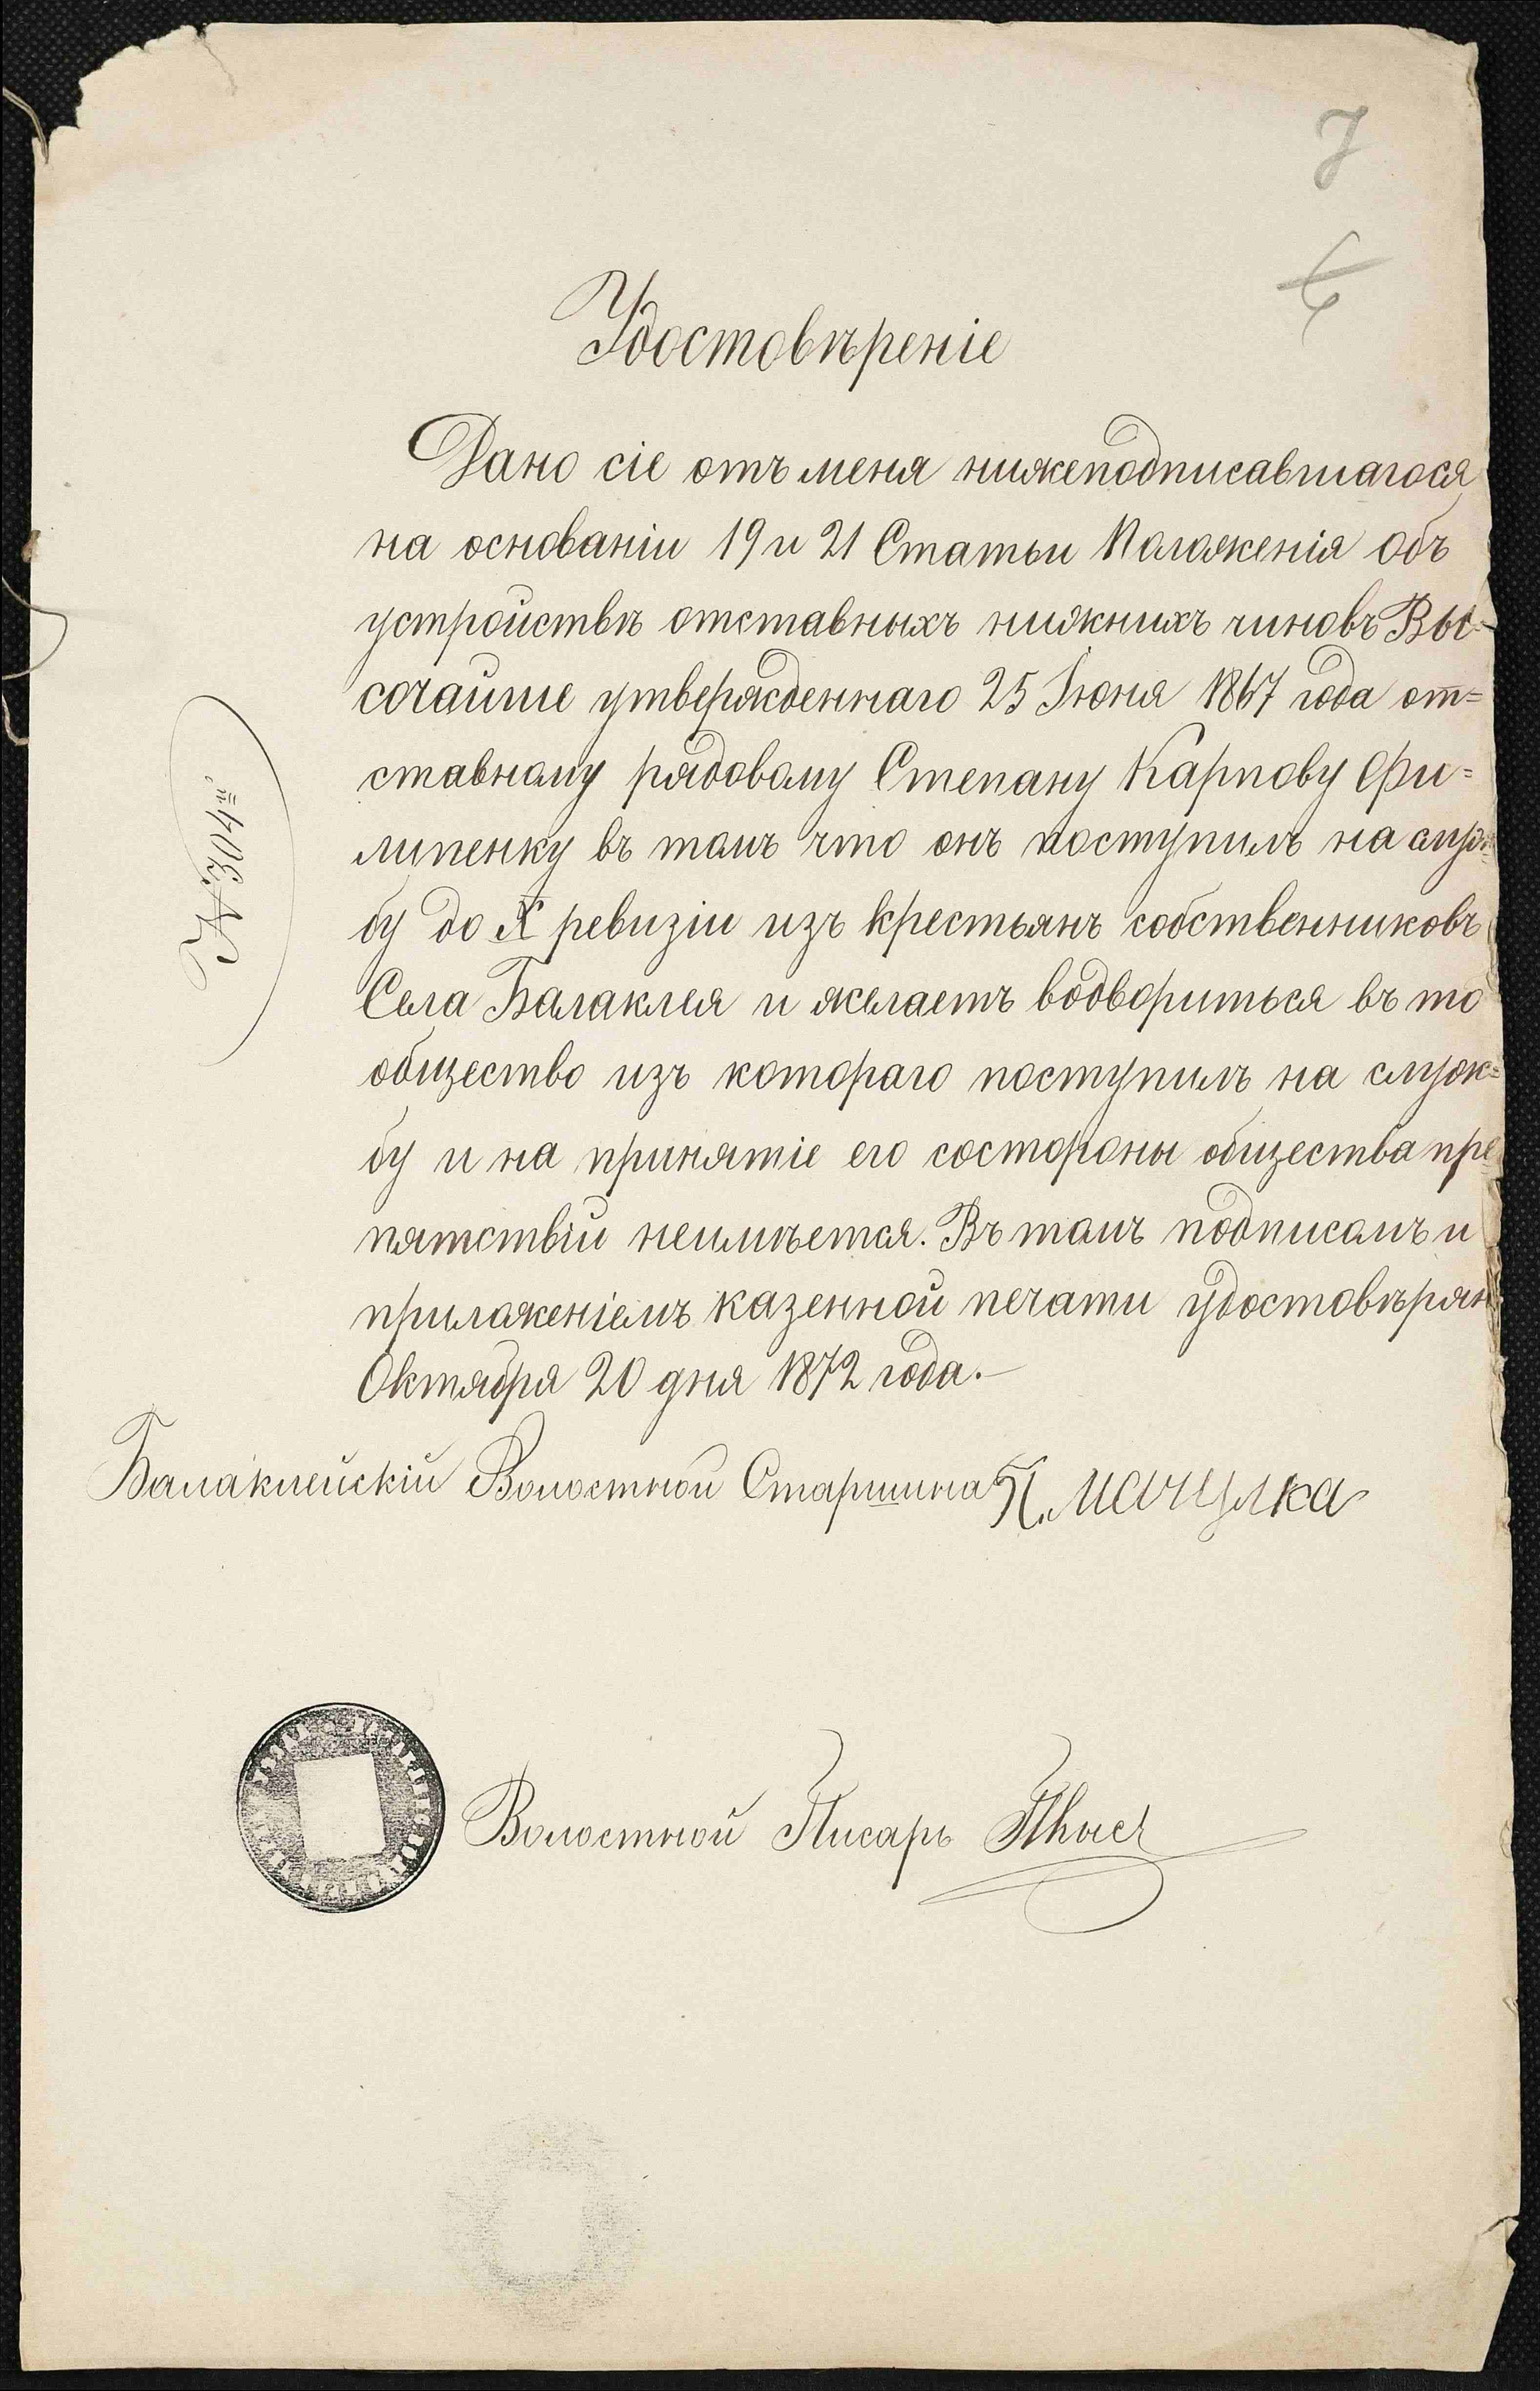 7
6
Удостовѣреніе
Дано сіе отъ меня нижеподписавшагося
на основаніи 19 и 21 Статьи Положенія объ
устройствѣ отставныхъ нижнихъ чиновъ Вы-
сочайше утвержденнаго 25 Іюня 1867 года от=
ставному рядовому Степану Карпову Фи=
липенку въ томъ что онъ поступилъ на служ=
бу до X ревизіи изъ крестьянъ собственниковъ
Села Балаклея и желаетъ водвориться въ то
общество изъ котораго поступилъ на служ=
бу и на принятіе его состороны общества пре
пятствій неимѣется. Въ томъ подписомъ и
приложеніемъ казенной печати удостовѣряю
Октября 20 дня 1872 года.—
№ 304й.
Балаклейскій Волостной Старшина П. мачулка
Волостной Писарь